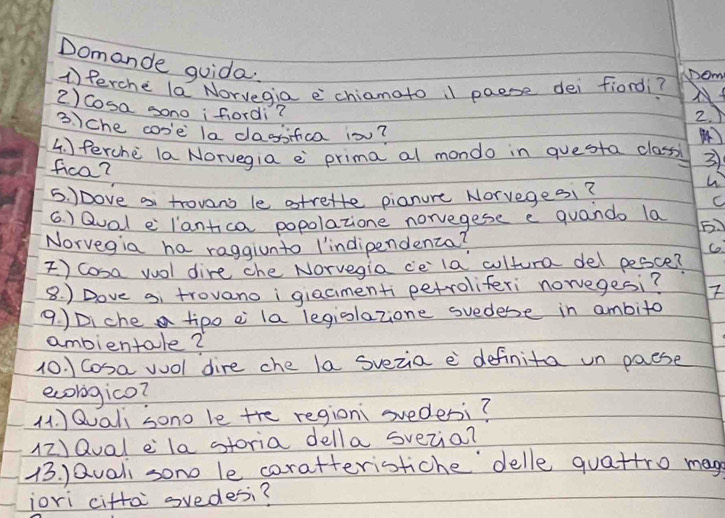 Domande guida.
1) Perchè la Norvegia è chiamato il paese dei fiordi?
2) Cosa sono i fiordi?
3.) Che cos'è la classifica isu?
4.) Perchè la Norvegia è prima al mondo in questa classi
fica?
5.) Dove si trovano le strette pianure Norvegesi?
6.) Qual è l'antica popolazione norvegese e quando la
Norvegia ha raggiunto l'indipendenza?
7) Cosa vuol dire che Norvegia c'è la cultura del pesce?
8.) Dove si trovano i giacimenti petroliferi norvegesi?
9.) Di che tipo è la legislazione svedese in ambito
ambientale?
10.) Cosa vuol dire che la Svezia è definita un paese
ecologico?
11.) Quali sono le tre regioni svedesi?
12) Qual è la storia della Svezia?
13.) Quali sono le caratteristiche delle quattro mag
iori città svedesi?
Dom
2.)
3)
4
5.)
6
7